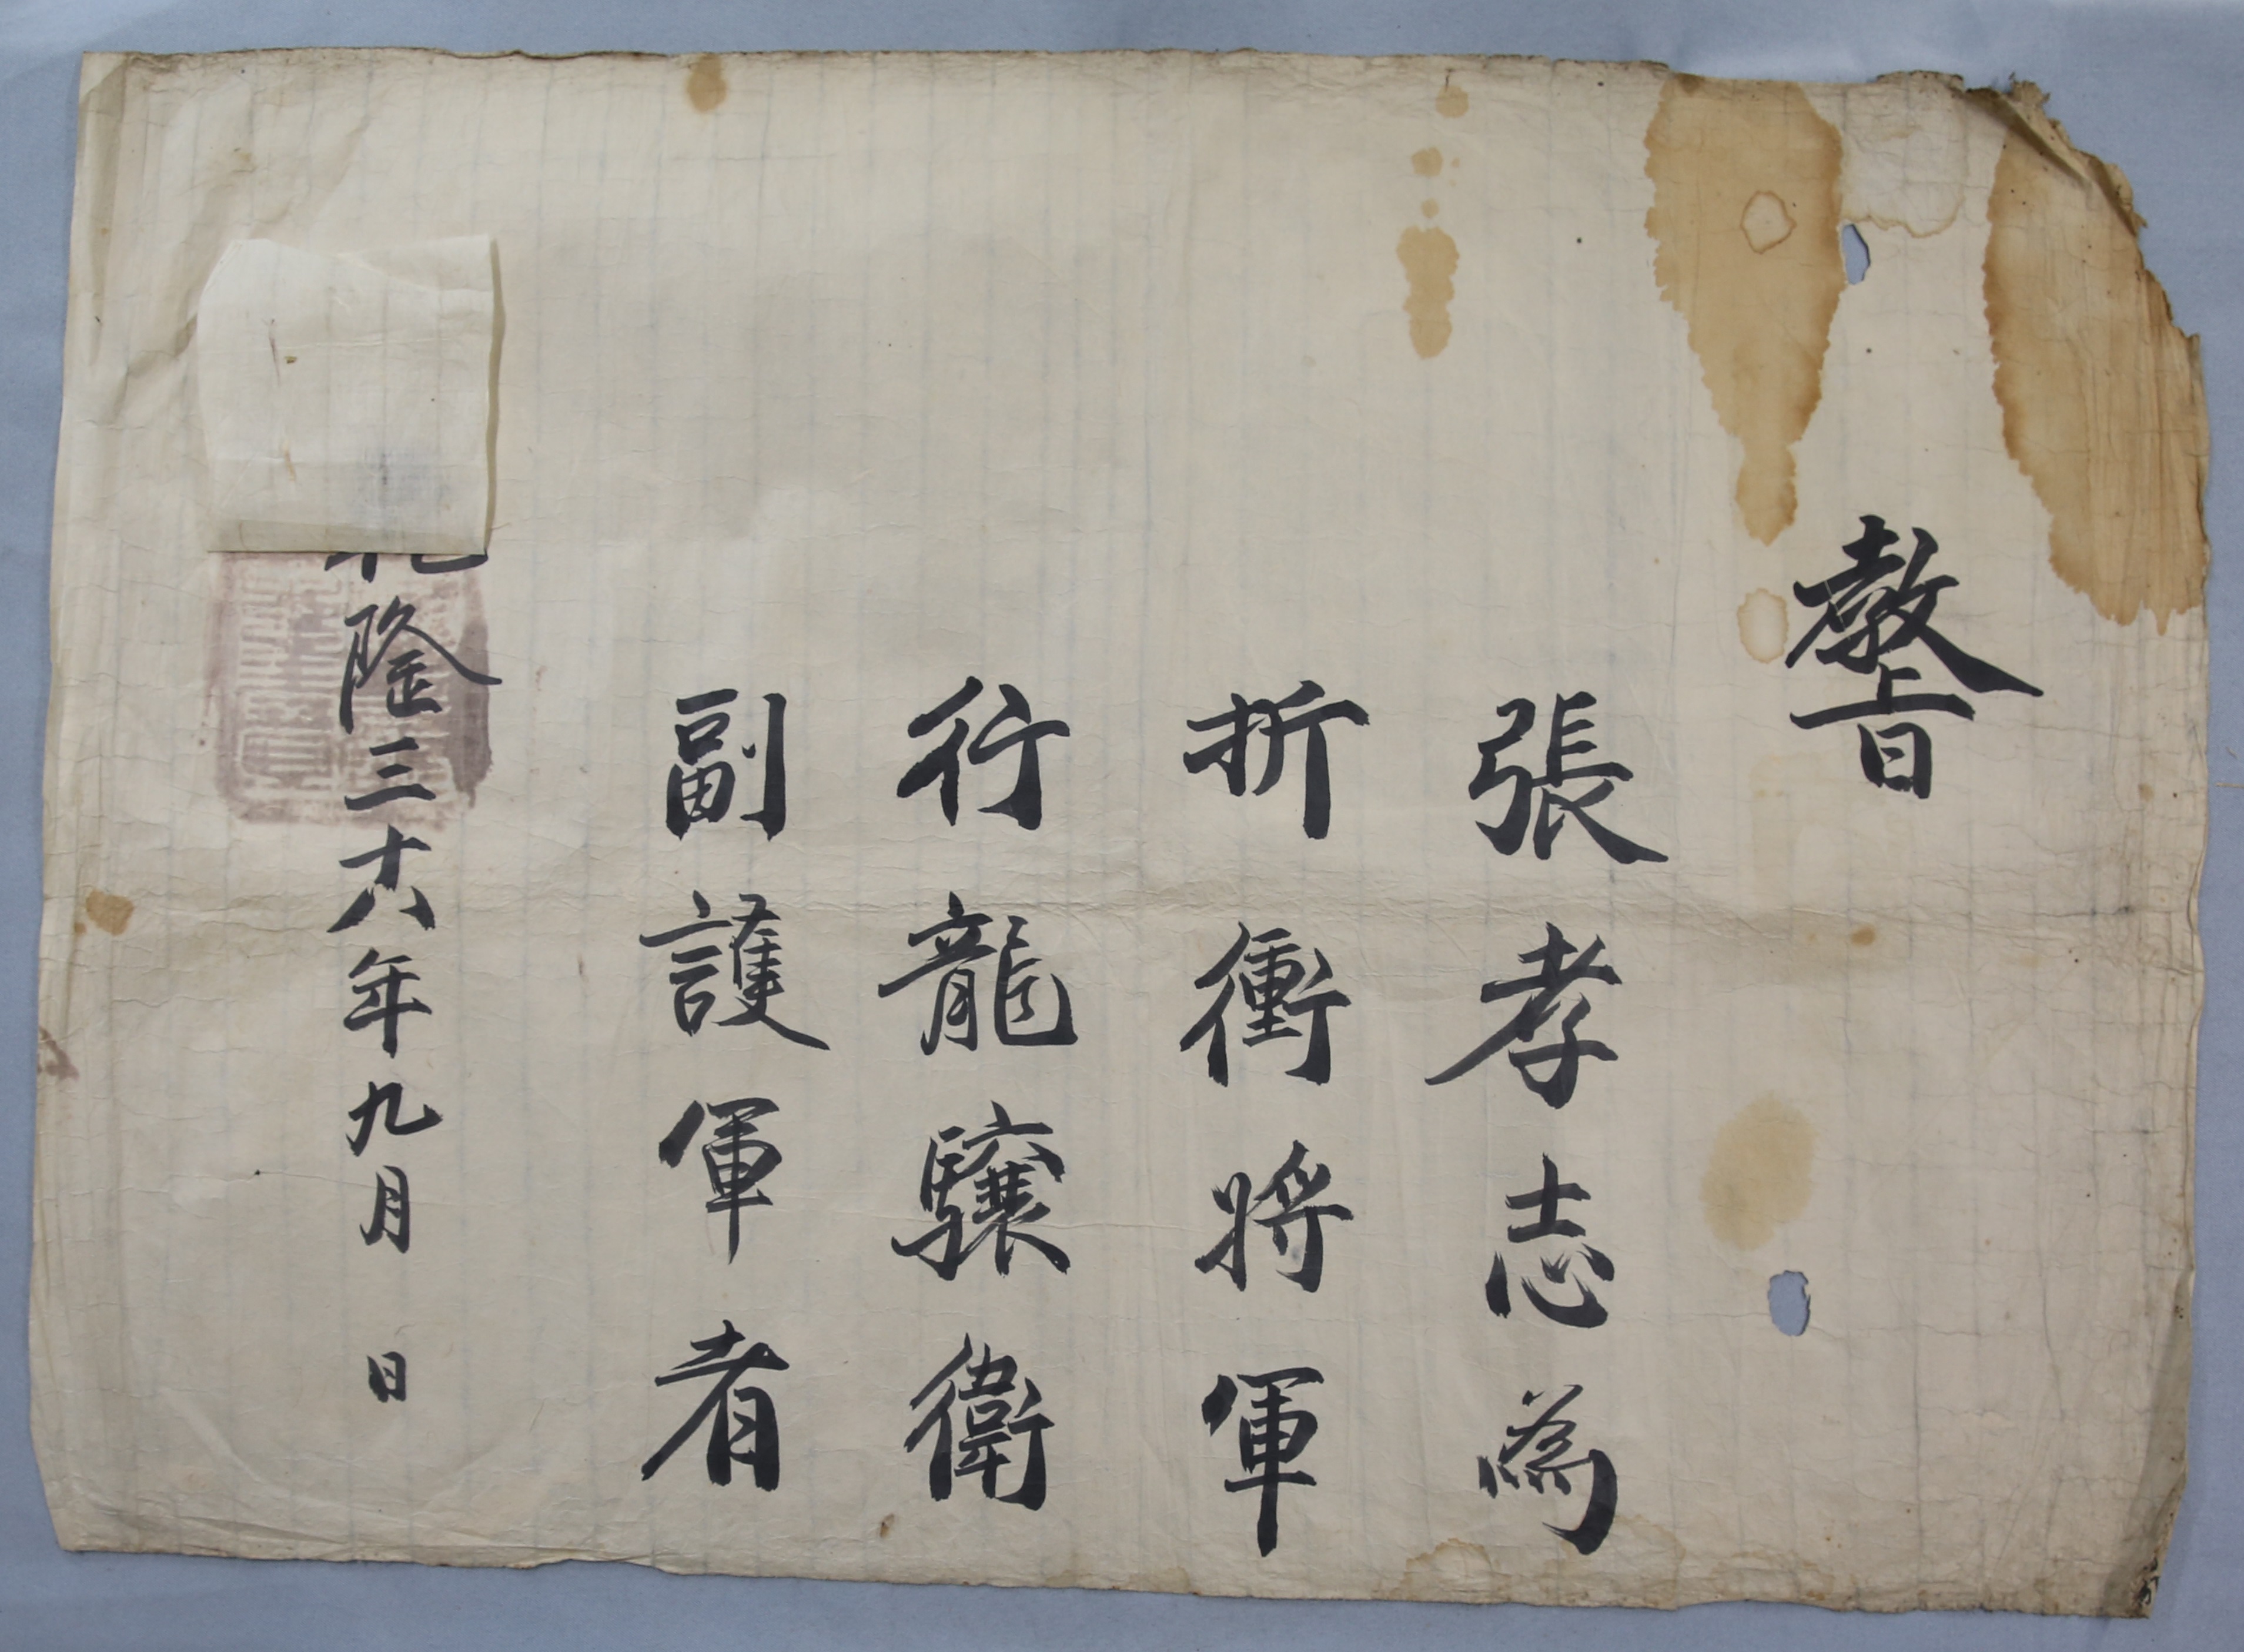 敎旨
張孝志為
折衝將軍
行龍驤衛
副護軍者
隆三十六年九月 日